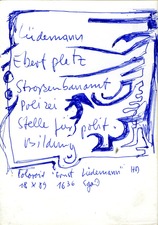 Lüdemann
Ebertplatz
Strassenbauamt
Polizei
Stelle für polit.
Bildung
Polaroid Ernst Lüdemann
18 X 89 1636